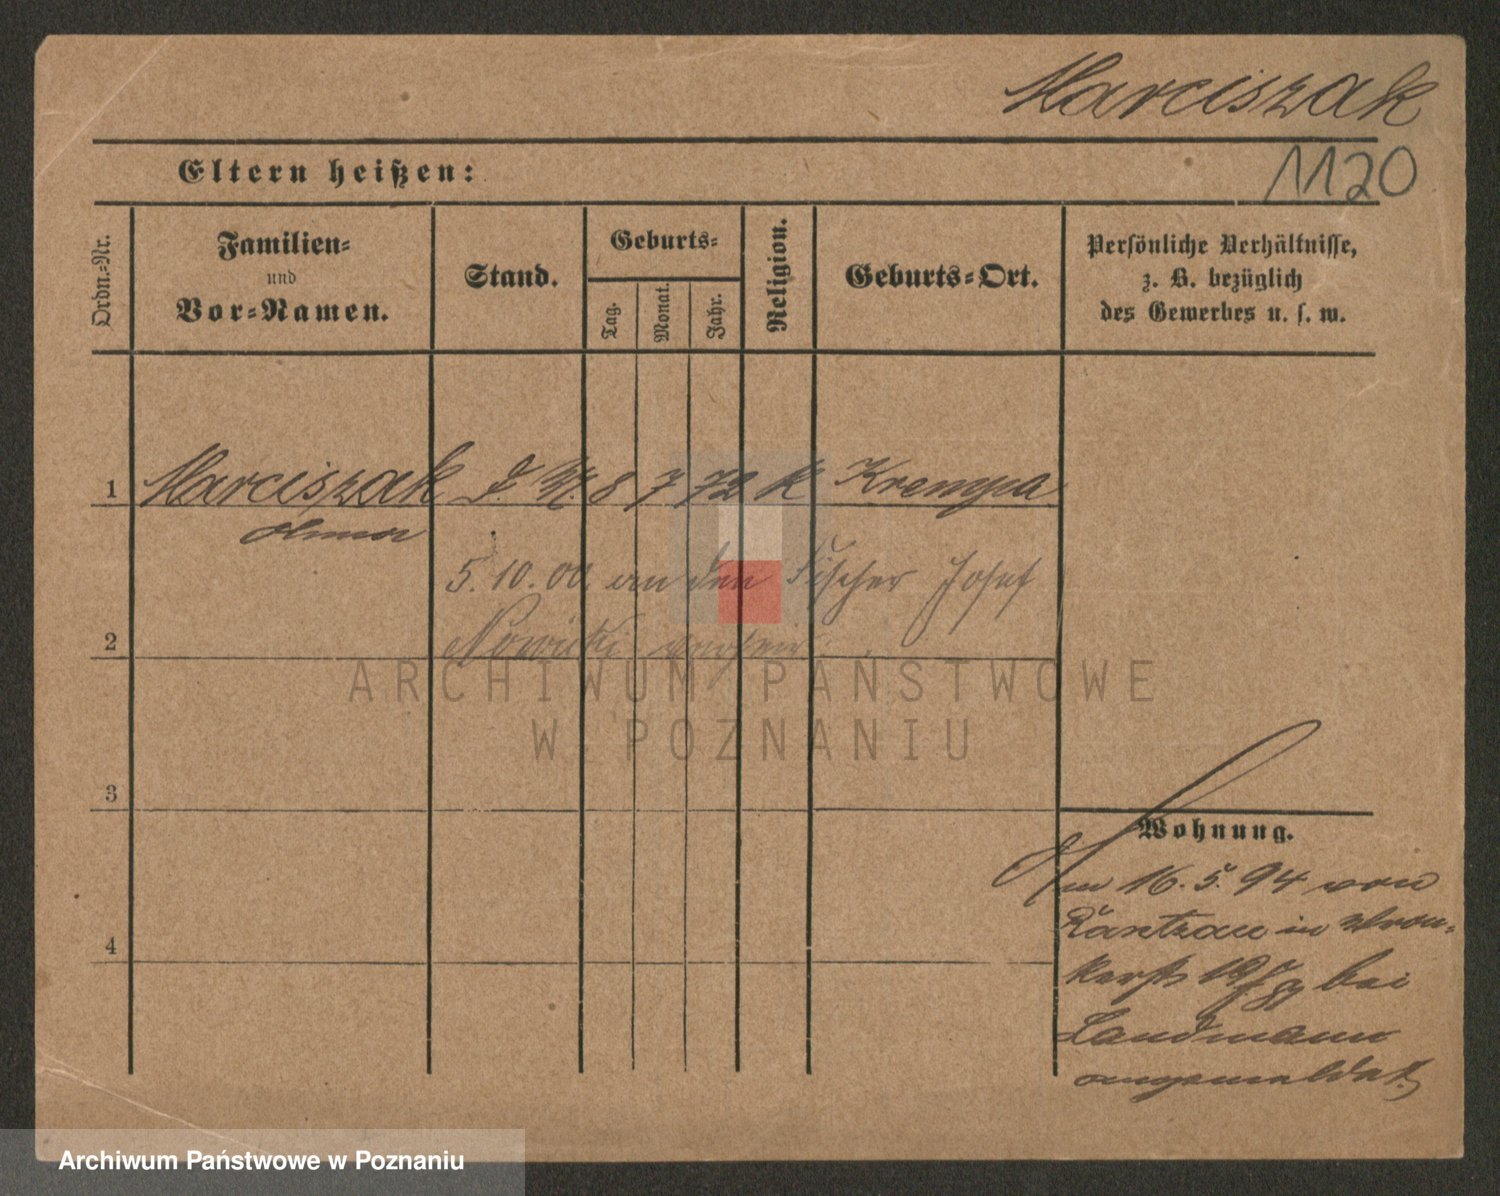 Marciszak
1120
Eltern heißen:
Ordn.-Nr.
Familien-
und
Vor-Namen.
Stand.
Geburts-
Tag.
Monat.
Jahr.
Religion.
Geburts-Ort.
Persönliche Verhältnisse,
z. B. bezüglich
des Gewerbes u. s. w.
1 Marciszak d. M. 8 7 72 k Krempa
5. 10. 00. an den Fischer Josef
2 Nowicki
ARCHIWUM PAŃSTWOWE
W POZNANIU
3
Wohnung.
Am 16. 5. 94 von
in
4
19 bei
Landmann
angemeldet.
Archiwum Państwowe w Poznaniu